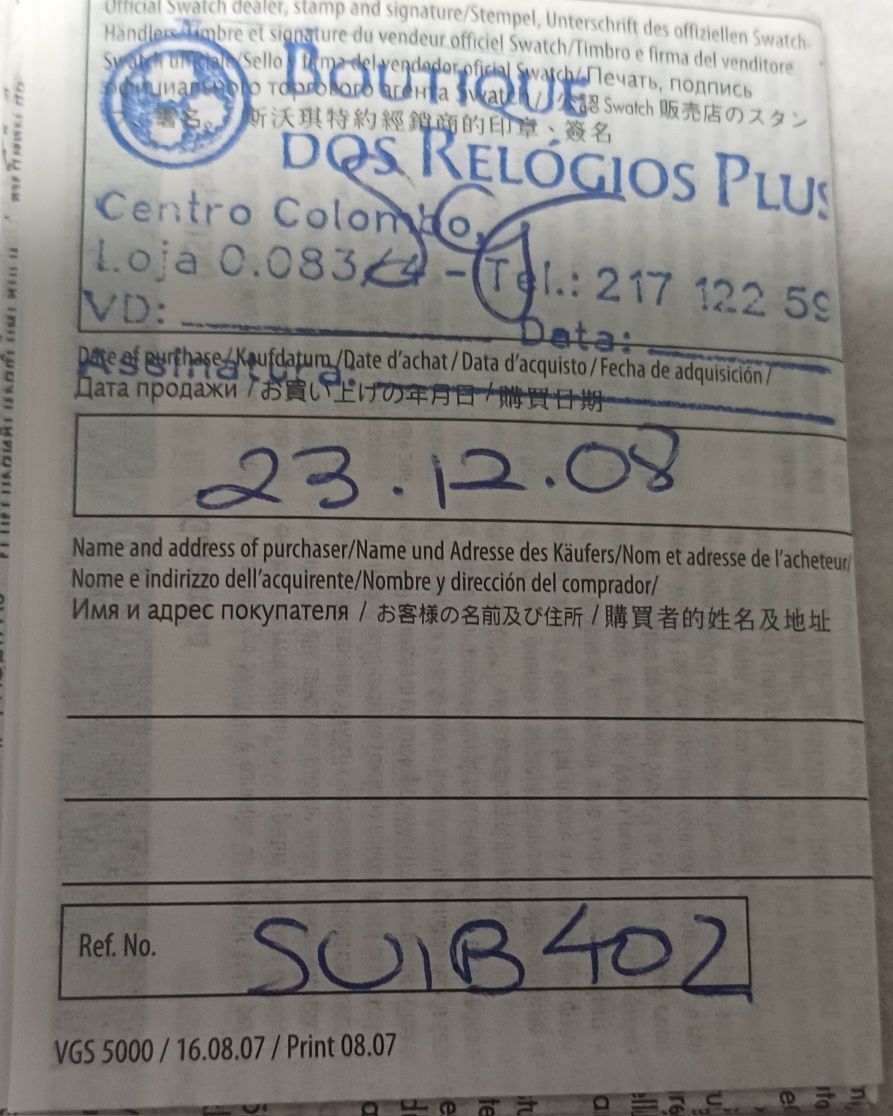 Official Swatch dealer, stamp and signature/Stempel, Unterschrift des offiziellen Swatch-
Händlers/Timbre et signature du vendeur officiel Swatch/Timbro e firma del venditore
Swatch ufficiale/Sello y firma del vendedor oficial Swatch/Печать, подпись
официального торгового агента Swatch/公認 Swatch 販売店のスタン
署名。 斯沃琪特約經銷商的印章、簽名
BOUTIQUE
DOS RELÓGIOS PLUS
Centro Colombo,
Loja 0.083 - Tel.: 217 122 59
VD:
Data:
Assinatura:
Date of purchase/Kaufdatum/Date d'achat/Data d'acquisto/Fecha de adquisición/
Дата продажи / お買い上げの年月日 / 購買日期
23.12.08
Name and address of purchaser/Name und Adresse des Käufers/Nom et adresse de l'acheteur/
Nome e indirizzo dell'acquirente/Nombre y dirección del comprador/
Имя и адрес покупателя / お客様の名前及び住所 / 購買者的姓名及地址
Ref. No. SUIB402
VGS 5000 / 16.08.07 / Print 08.07